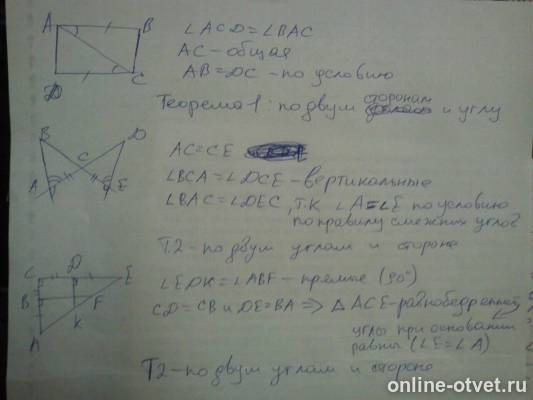 A B
∠ACD=∠BAC
AC-общая
D C
AB=DC-по условию
Теорема 1: по двум сторонам и углу
B D
C
A E
AC=CE
∠BCA=∠DCE-вертикальные
∠BAC=∠DEC, т.к ∠A=∠E по условию
по правилу смежных углов
T.2-по двум углам и стороне
C D E
B F
K
A
∠EDK=∠ABF-прямые (90°)
CD=CB и DE=BA => △ACE-равнобедренный
углы при основании
равны (∠E=∠A)
T2-по двум углам и стороне
online-otvet.ru